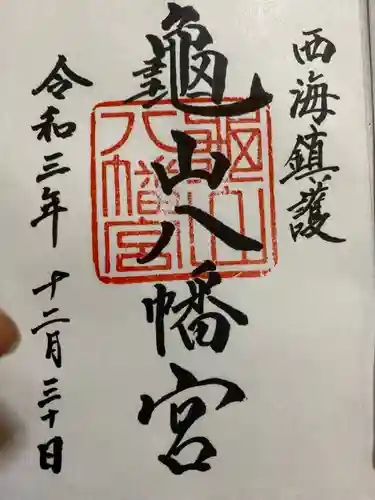 西海鎮護
奉
龜山八幡宮
龜山
八幡宮
令和三年 十二月三十日